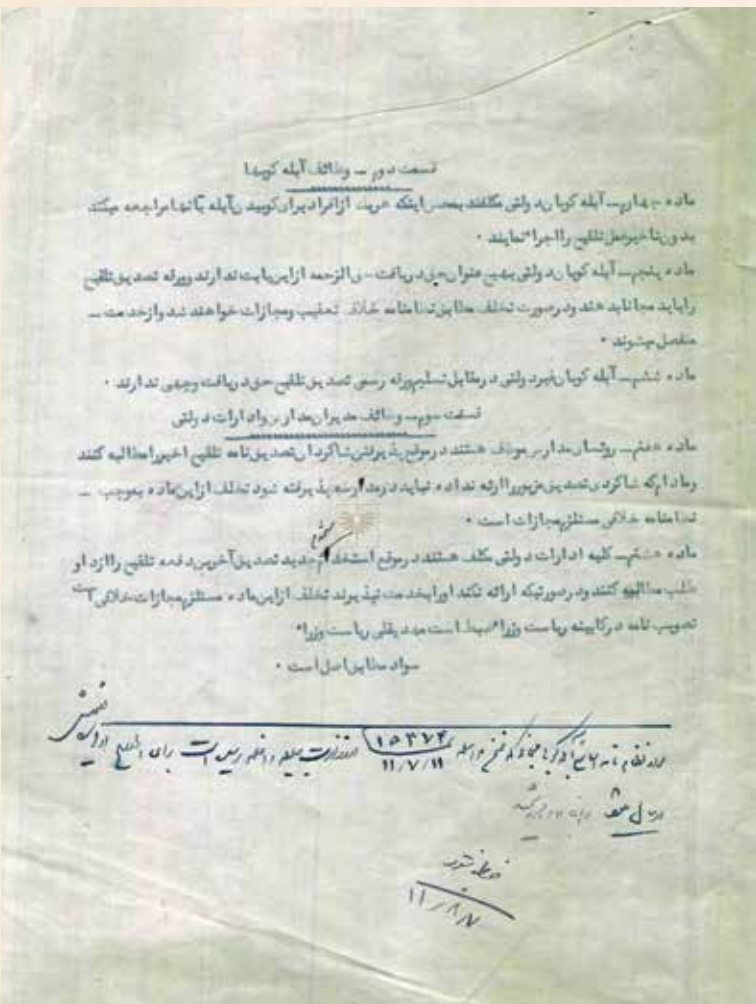 قسمت دوم ــ وظائف آبله کوبها
ماده چهارم ــ آبله کوبان دولتی مکلفند بمحض اینکه هریک از افراد برای کوبیدن آبله بآنها مراجعه میکند
بدون تاخیر عمل تلقیح را اجراء نمایند ۰
ماده پنجم ــ آبله کوبان دولتی بهیچ عنوان حق دریافت حق الزحمه از این بابت ندارند و ورقه تصدیق تلقیح
را باید مجانا بدهند و در صورت تخلف مطابق نظامنامه خلاف تعقیب و مجازات خواهند شد و از خدمت ــ
منفصل میشوند ۰
ماده ششم ــ آبله کوبان غیر دولتی در مقابل تسلیم ورقه رسمی تصدیق تلقیح حق دریافت وجهی ندارند ۰
قسمت سوم ــ وظائف مدیران مدارس و ادارات دولتی
ماده هفتم ــ روسای مدارس موظف هستند در موقع پذیرفتن شاگردان تصدیق نامه تلقیح اخیر را مطالبه کنند
و مادام که شاگردی تصدیق مزبور را ارئه نداده نباید در مدارسه پذیرفته شود تخلف از این ماده بموجب ــ
نظامنامه خلافی مستلزم مجازات است ۰
ماده هشتم ــ کلیه ادارات دولتی مکلف هستند در موقع استخدام مستخدم جدید تصدیق آخرین دفعه تلقیح را از او
طلب مطالبه کنند و در صورتیکه ارائه نکند او را بخدمت نپذیرند تخلف از این ماده مستلزم مجازات خلافی است
تصویب نامه در کابینه ریاست وزراء ضبط است مهدیقلی ریاست وزراء
سواد مطابق اصل است ۰
سواد نظام نامه ۱۵۳۷۴ وزارت جلیله داخله رسیده است برای اطلاع
۱۱/۷/۱۱
ارسال میشود
ضبط شود
۱۱/۸/۷